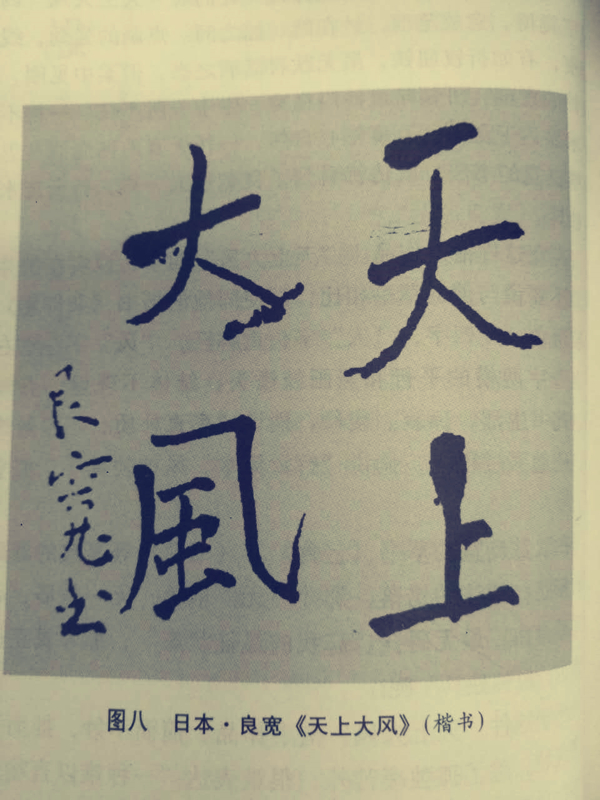 天上
大風
良寛书
图八 日本·良宽《天上大风》(楷书)